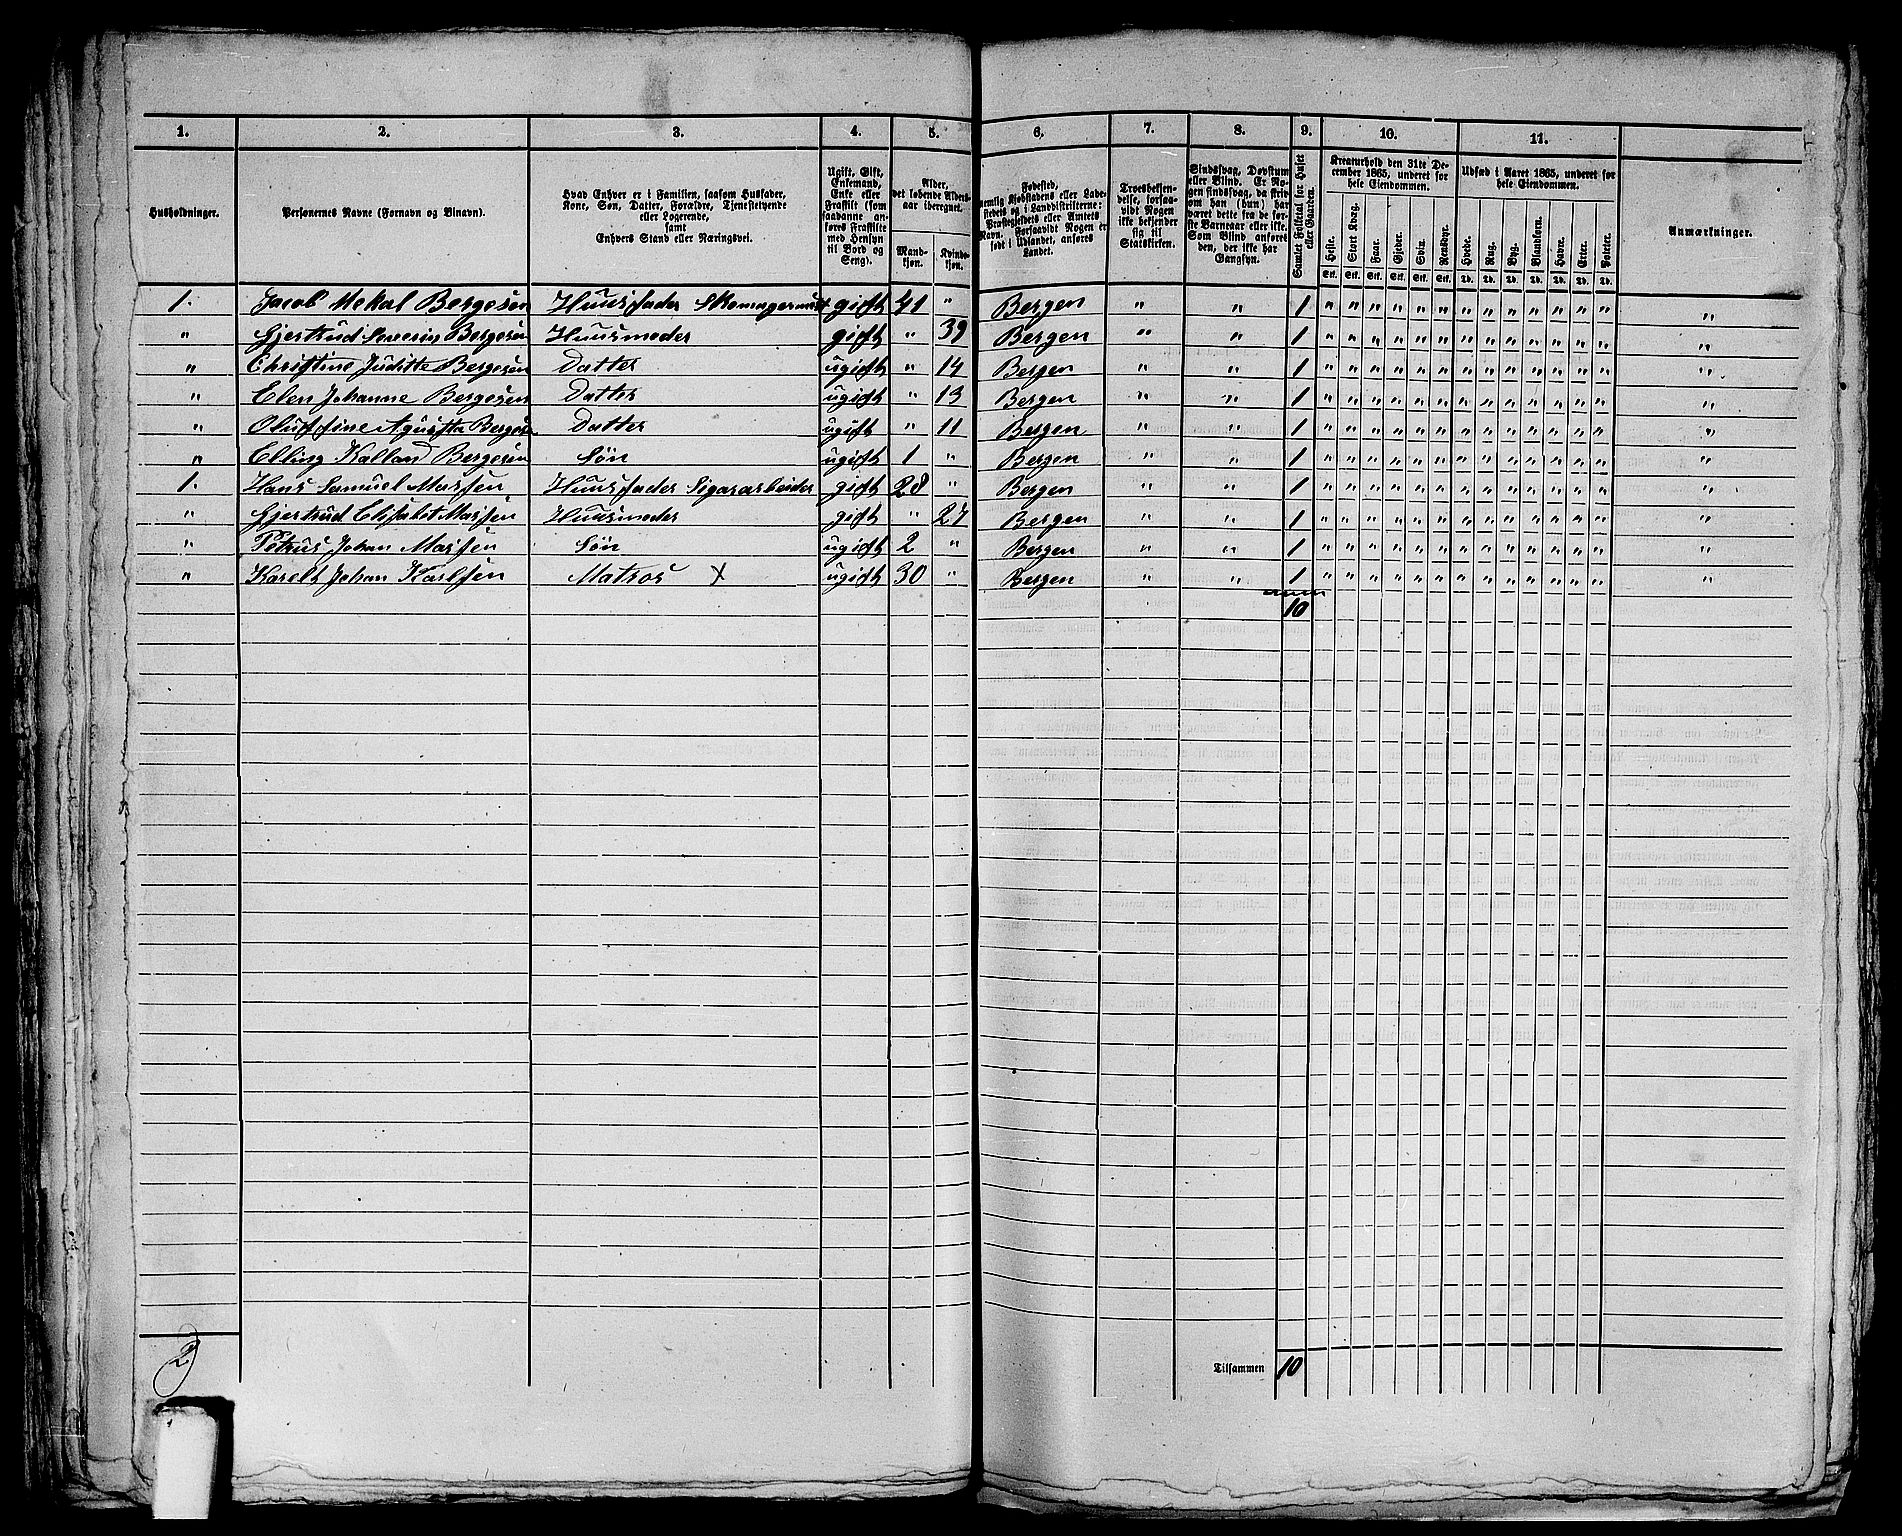 1. 2. 3. 4. 5. 6. 7. 8. 9. 10. 11.
Husholdninger.
Personernes Navne (Fornavn og Binavn).
Hvad Enhver er i Familien, saasom Husfader,
Kone, Søn, Datter, Forældre, Tjenestetyende
eller Logerende,
samt
Enhvers Stand eller Næringsvei.
Ugift, Gift,
Enkemand,
Enke eller
Fraskilt (som
saadanne an-
føres Fraskilte
med Hensyn
til Bord og
Seng).
Alder,
det løbende Alders-
aar iberegnet.
Mand-
kjøn.
Kvinde-
kjøn.
Fødested,
nemlig Kjøbstadens eller Lade-
stedets og i Landdistrikterne:
Præstegjeldets eller Amtets
Navn. Forsaavidt Nogen er
født i Udlandet, anføres
Landet.
Troesbekjen-
delse, forsaa-
vidt Nogen
ikke bekjender
sig til
Statskirken.
Sindssvag, Døvstum
eller Blind. Er No-
gen sindssvag, da skriv
om han (hun) har
været dette fra de før-
ste Barneaar eller ikke.
Som Blind anføres
den, der ikke har
Gangsyn.
Samlet Folketal for Huset
eller Gaarden.
Kreaturhold den 31te De-
cember 1865, underet for
hele Eiendommen.
Heste. Stort Kvæg. Faar. Gjeder. Svin. Rensdyr.
Stk. Stk. Stk. Stk. Stk. Stk.
Udsæd i Aaret 1865, underet for
hele Eiendommen.
Hvede. Rug. Byg. Blandkorn. Havre. Erter. Poteter.
Td. Td. Td. Td. Td. Td. Td.
Anmærkninger.
1. Jacob Mekal Bergesen Huusfader gift 41 " Bergen " " 1 " " " " " " " " " " " " " "
" Gjertrud Severin Bergesen Huusmoder gift " 39 Bergen " " 1 " " " " " " " " " " " " " "
" Christine Juditte Bergesen Datter ugift " 14 Bergen " " 1 " " " " " " " " " " " " " "
" Elen Johanne Bergesen Datter ugift " 13 Bergen " " 1 " " " " " " " " " " " " " "
" Bergesen Datter ugift " 11 Bergen " " 1 " " " " " " " " " " " " " "
" Elling Kalland Bergesen Søn ugift 1 " Bergen " " 1 " " " " " " " " " " " " " "
1. Hans Samuel Massen Huusfader Sigararbeider gift 28 " Bergen " " 1 " " " " " " " " " " " " " "
" Gjertrud Elisabet Massen Huusmoder gift " 27 Bergen " " 1 " " " " " " " " " " " " " "
" Petrus Johan Massen Søn ugift 2 " Bergen " " 1 " " " " " " " " " " " " " "
" Karelt Johan Karlsen Matros X ugift 30 " Bergen " " 1 " " " " " " " " " " " " " "
10
2
Tilsammen 10